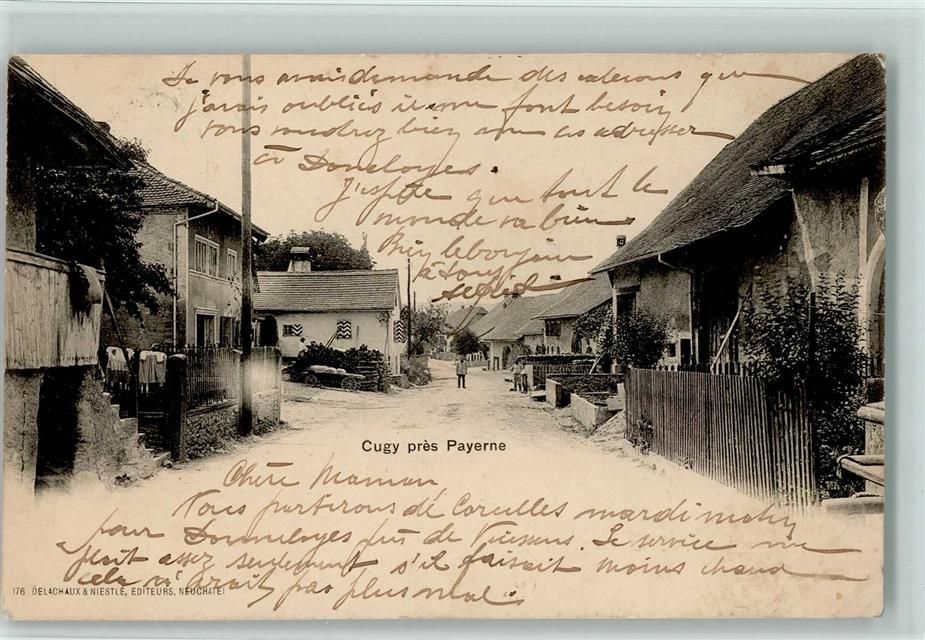 Je vous avais demandé des caleçons que
j'avais oubliés ils me font besoin
vous voudrez bien me les adresser
à Donneloyes.
J'espère que tout le
monde va bien
Bien le bonjour
à tous
Cugy près Payerne
Chère Maman
Nous partirons de Corcelles mardi matin
pour Donneloyes près de Vuissens. Le service me
plait assez seulement s'il faisait moins chaud
cela n'irait pas plus mal.
176 DELACHAUX & NIESTLÉ, EDITEURS, NEUCHATEL